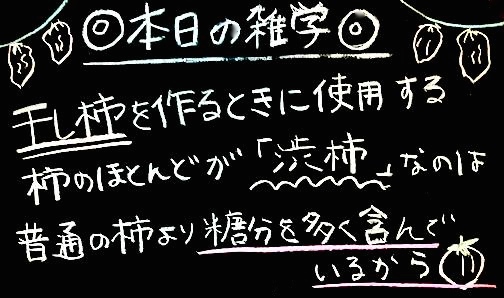 ◎本日の雑学◎
干し柿を作るときに使用する
柿のほとんどが「渋柿」なのは
普通の柿より糖分を多く含んで
いるから